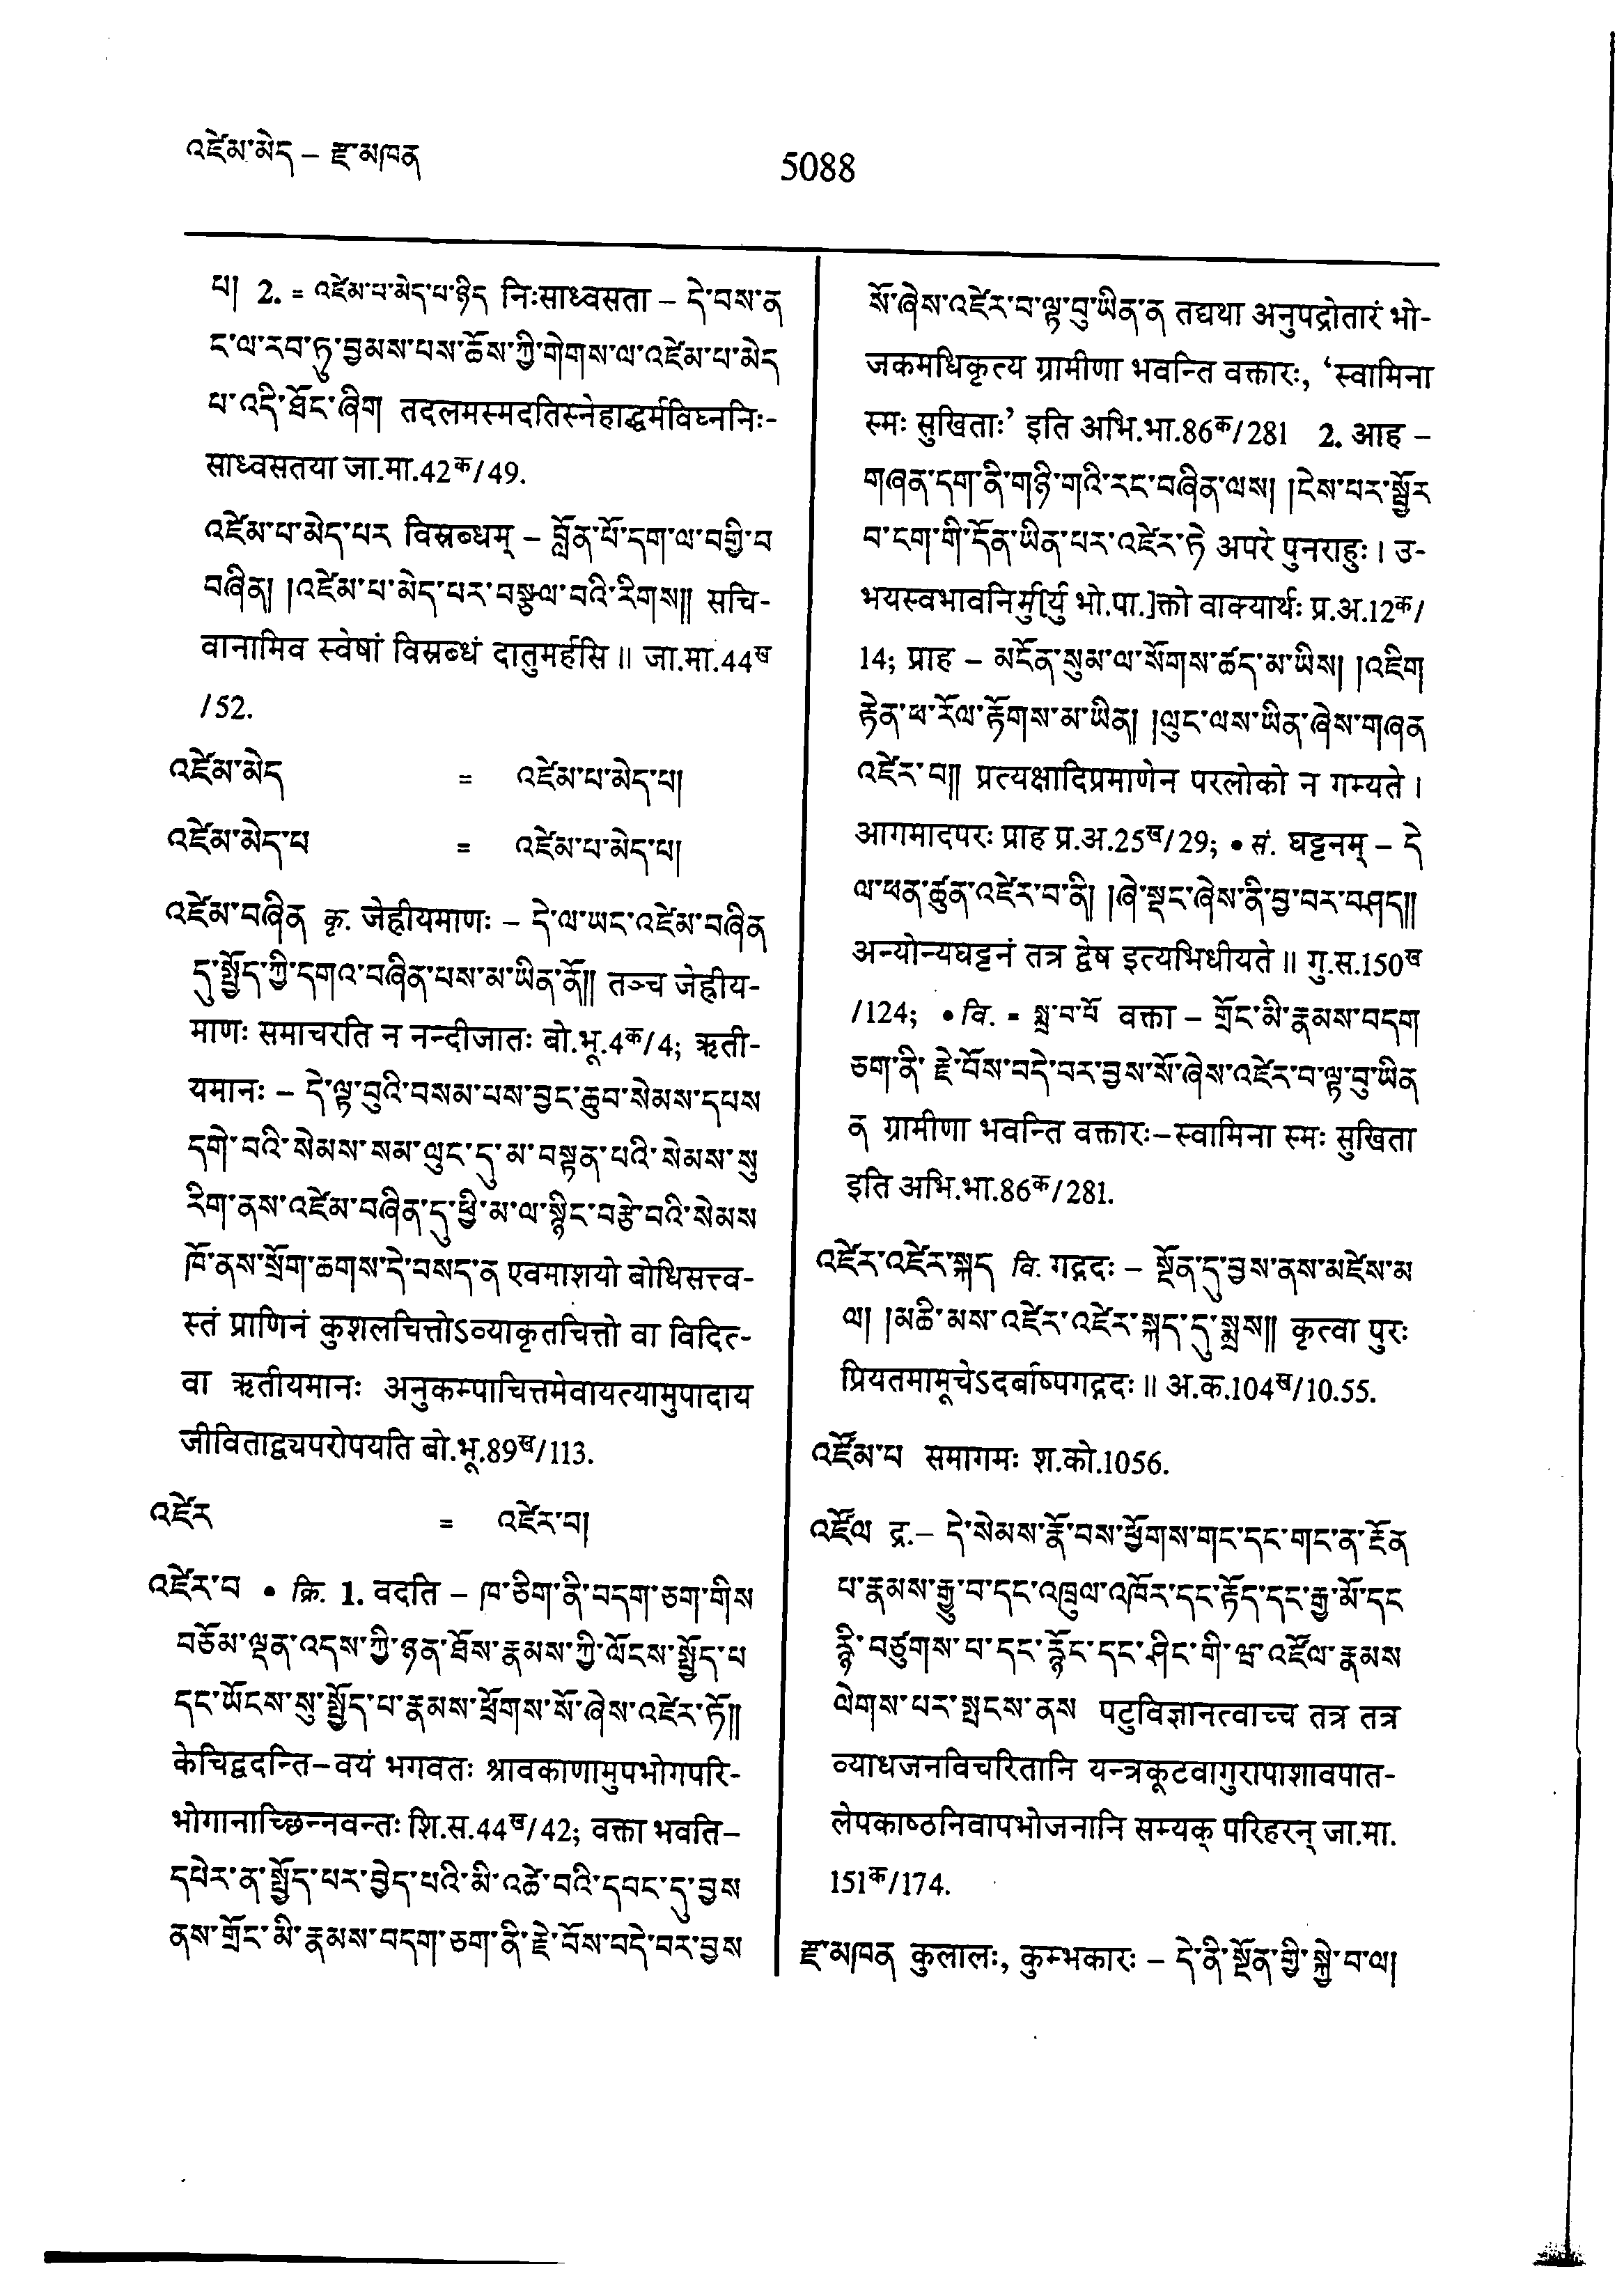 འཛེམ་མེད – རྫ་མཁན
5088
པ། 2. = འཛེམ་པ་མེད་པ་ཉིད निःसाध्वसता – དེ་བས་ན
ང་ལ་རབ་ཏུ་བྱམས་པས་ཆོས་ཀྱི་གེགས་ལ་འཛེམ་པ་མེད
པ་འདི་ཐོང་ཞིག तदलमस्मदतिस्नेहाद्धर्मविघ्ननिः-
साध्वसतया जा.मा.42क/49.
འཛེམ་པ་མེད་པར विस्रब्धम् – བློན་པོ་དག་ལ་བགྱི་བ
བཞིན། །འཛེམ་པ་མེད་པར་བསྩལ་བའི་རིགས།། सचि-
वानामिव स्वेषां विस्रब्धं दातुमर्हसि ॥ जा.मा.44ख
/52.
འཛེམ་མེད = འཛེམ་པ་མེད་པ།
འཛེམ་མེད་པ = འཛེམ་པ་མེད་པ།
འཛེམ་བཞིན कृ. जेह्रीयमाणः – དེ་ལ་ཡང་འཛེམ་བཞིན
དུ་སྤྱོད་ཀྱི་དགའ་བཞིན་པས་མ་ཡིན་ནོ།། तञ्च जेह्रीय-
माणः समाचरति न नन्दीजातः बो.भू.4क/4; ऋती-
यमानः – དེ་ལྟ་བུའི་བསམ་པས་བྱང་ཆུབ་སེམས་དཔས
དགེ་བའི་སེམས་སམ་ལུང་དུ་མ་བསྟན་པའི་སེམས་སུ
རིག་ནས་འཛེམ་བཞིན་དུ་ཕྱི་མ་ལ་སྙིང་བརྩེ་བའི་སེམས
ཁོ་ནས་སྲོག་ཆགས་དེ་བསད་ན एवमाशयो बोधिसत्त्व-
स्तं प्राणिनं कुशलचित्तोऽव्याकृतचित्तो वा विदित-
वा ऋतीयमानः अनुकम्पाचित्तमेवायत्यामुपादाय
जीविताद्व्यपरोपयति बो.भू.89ख/113.
འཛེར = འཛེར་བ།
འཛེར་བ • क्रि. 1. वदति – ཁ་ཅིག་ནི་བདག་ཅག་གིས
བཅོམ་ལྡན་འདས་ཀྱི་ཉན་ཐོས་རྣམས་ཀྱི་ལོངས་སྤྱོད་པ
དང་ཡོངས་སུ་སྤྱོད་པ་རྣམས་ཕྲོགས་སོ་ཞེས་འཛེར་ཏོ།།
केचिद्वदन्ति–वयं भगवतः श्रावकाणामुपभोगपरि-
भोगानाच्छिन्नवन्तः शि.स.44ख/42; वक्ता भवति–
དཔེར་ན་སྤྱོད་པར་བྱེད་པའི་མི་འཚེ་བའི་དབང་དུ་བྱས
ནས་གྲོང་མི་རྣམས་བདག་ཅག་ནི་རྗེ་བོས་བདེ་བར་བྱས
སོ་ཞེས་འཛེར་བ་ལྟ་བུ་ཡིན་ན तद्यथा अनुपद्रोतारं भो-
जकमधिकृत्य ग्रामीणा भवन्ति वक्तारः, ‘स्वामिना
स्मः सुखिताः’ इति अभि.भा.86क/281 2. आह –
གཞན་དག་ནི་གཉི་གའི་རང་བཞིན་ལས། །ངེས་པར་སྦྱོར
བ་ངག་གི་དོན་ཡིན་པར་འཛེར་ཏེ अपरे पुनराहुः । उ-
भयस्वभावनिर्मु[र्यु भो.पा.]क्तो वाक्यार्थः प्र.अ.12क/
14; प्राह – མངོན་སུམ་ལ་སོགས་ཚད་མ་ཡིས། །འཇིག
རྟེན་ཕ་རོལ་རྟོགས་མ་ཡིན། །ལུང་ལས་ཡིན་ཞེས་གཞན
འཛེར་བ།། प्रत्यक्षादिप्रमाणेन परलोको न गम्यते ।
आगमादपरः प्राह प्र.अ.25ख/29; • सं. घट्टनम् – དེ
ལ་ཕན་ཚུན་འཛེར་བ་ནི། །ཞེ་སྡང་ཞེས་ནི་བྱ་བར་བཤད།།
अन्योन्यघट्टनं तत्र द्वेष इत्यभिधीयते ॥ गु.स.150ख
/124; • वि. = སྨྲ་བ་པོ वक्ता – གྲོང་མི་རྣམས་བདག
ཅག་ནི་རྗེ་བོས་བདེ་བར་བྱས་སོ་ཞེས་འཛེར་བ་ལྟ་བུ་ཡིན
ན ग्रामीणा भवन्ति वक्तारः–स्वामिना स्मः सुखिता
इति अभि.भा.86क/281.
འཛེར་འཛེར་སྐད वि. गद्गदः – སྔོན་དུ་བྱས་ནས་མཛེས་མ
ལ། །མཆི་མས་འཛེར་འཛེར་སྐད་དུ་སྨྲས།། कृत्वा पुरः
प्रियतमामूचेऽदर्बाष्पगद्गदः ॥ अ.क.104ख/10.55.
འཛོམ་པ समागमः श.को.1056.
འཛོལ द्र.– དེ་སེམས་རྣོ་བས་ཕྱོགས་གང་དང་གང་ན་རྔོན
པ་རྣམས་རྒྱུ་བ་དང་འཁྲུལ་འཁོར་དང་རྟོད་དང་རྒྱ་མོ་དང
རྙི་བཙུགས་པ་དང་རྙོང་དང་ཤིང་གི་ཝ་འཛོལ་རྣམས
ལེགས་པར་སྤངས་ནས पटुविज्ञानत्वाच्च तत्र तत्र
व्याधजनविचरितानि यन्त्रकूटवागुरापाशावपात-
लेपकाष्ठनिवापभोजनानि सम्यक् परिहरन् जा.मा.
151क/174.
རྫ་མཁན कुलालः, कुम्भकारः – དེ་ནི་སྔོན་གྱི་སྐྱེ་བ་ལ།